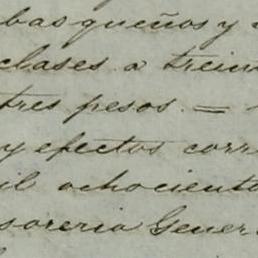 bas queños y
clases a trein
tres pesos. =
y efectos corr
il ochociento
soreria Gener